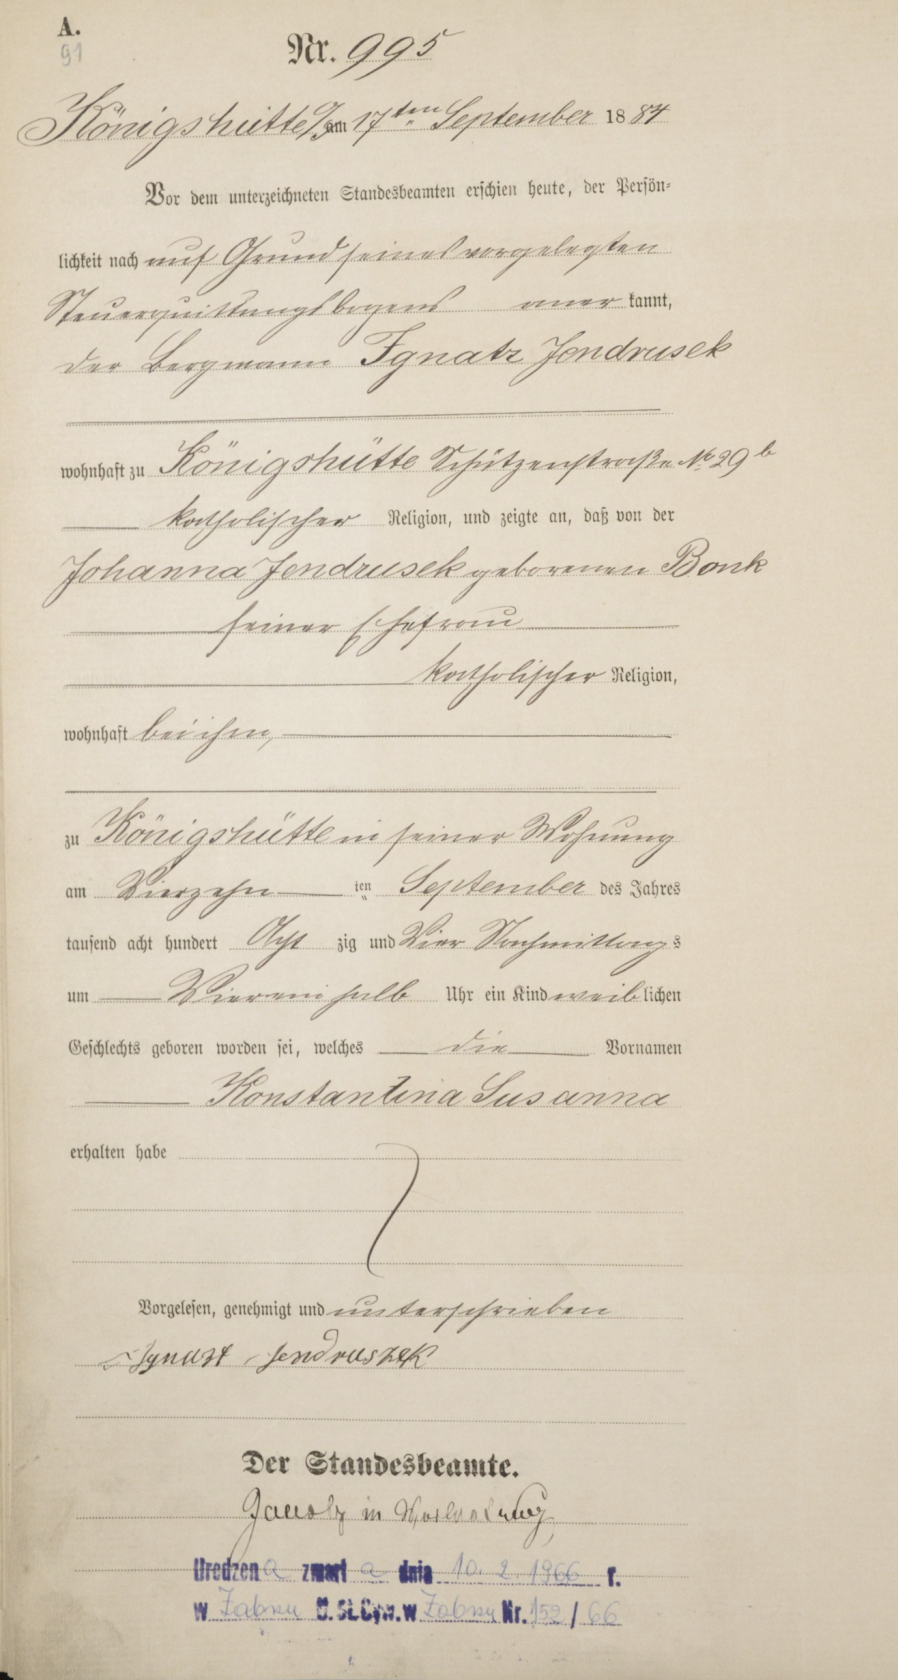 A.
91
Nr. 995
Königshütte am 17ten September 1884
Vor dem unterzeichneten Standesbeamten erschien heute, der Persön-
lichkeit nach auf Grund seines vorgelegten
Steuerquittungsbogens aner kannt,
der Bergmann Ignatz Jendrusek
wohnhaft zu Königshütte Schützenstraße No 29b
katholischer Religion, und zeigte an, daß von der
Johanna Jendrusek geborenen Bonk
seiner Ehefrau
katholischer Religion,
wohnhaft bei ihm,
zu Königshütte in seiner Wohnung
am Vierzehn ten September des Jahres
tausend acht hundert Acht zig und Vier Nachmittags
um Viereinhalb Uhr ein Kind weiblichen
Geschlechts geboren worden sei, welches die Vornamen
Konstantina Susanna
erhalten habe
Vorgelesen, genehmigt und unterschrieben
Ignazt Jendruszek
Der Standesbeamte.
in Vertretung
Urodzona zmarła dnia 10. 2. 1966 r.
w Zabrzu U.St.Cyw. w Zabrzu Nr. 152 / 66